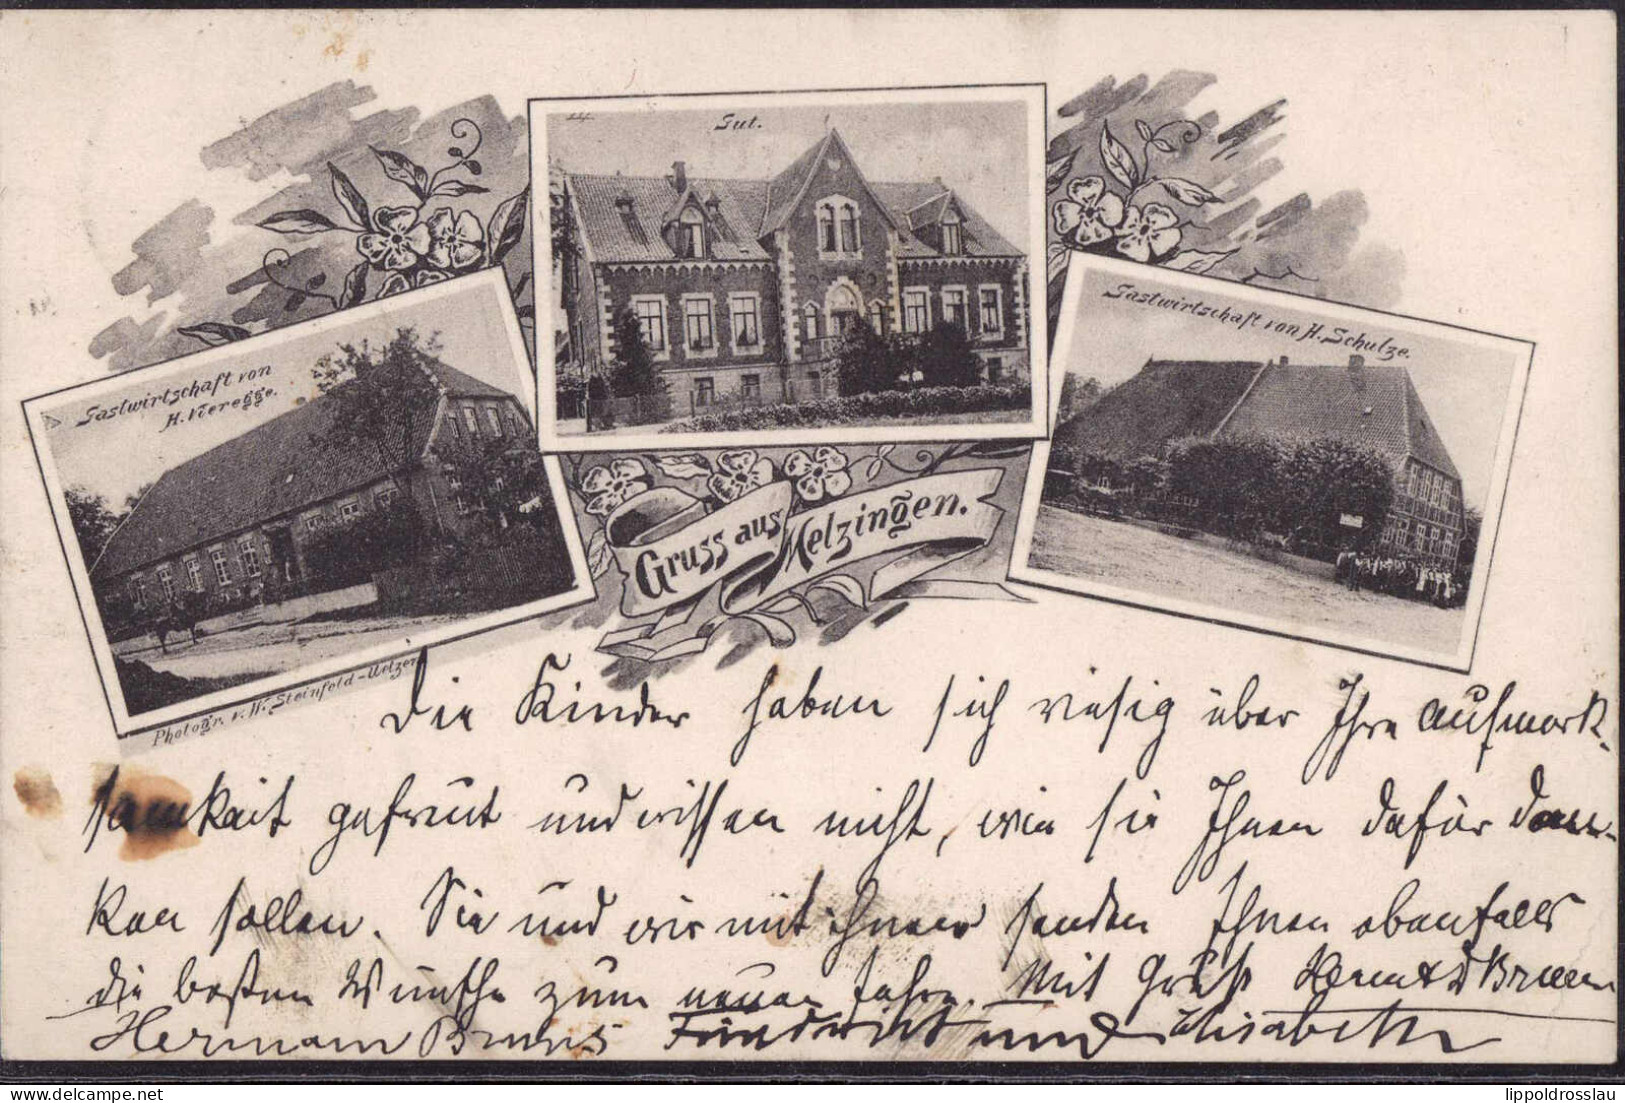 Gut.
Gastwirtschaft von
H. Vieregge.
Gastwirtschaft von H. Schulze.
Gruss aus Melzingen.
Photogr. v. W. Steinfeld-Uelzen
Die Kinder haben sich riesig über Ihre Aufmerk-
samkeit gefreut und wissen nicht, wie sie Ihnen dafür dan-
ken sollen. Sie und wir mit ihnen senden Ihnen ebenfalls
die besten Wünsche zum neuen Jahre. Mit Gruß
Hermann Bruns und Elisabeth
delcampe.net
lippoldrosslau